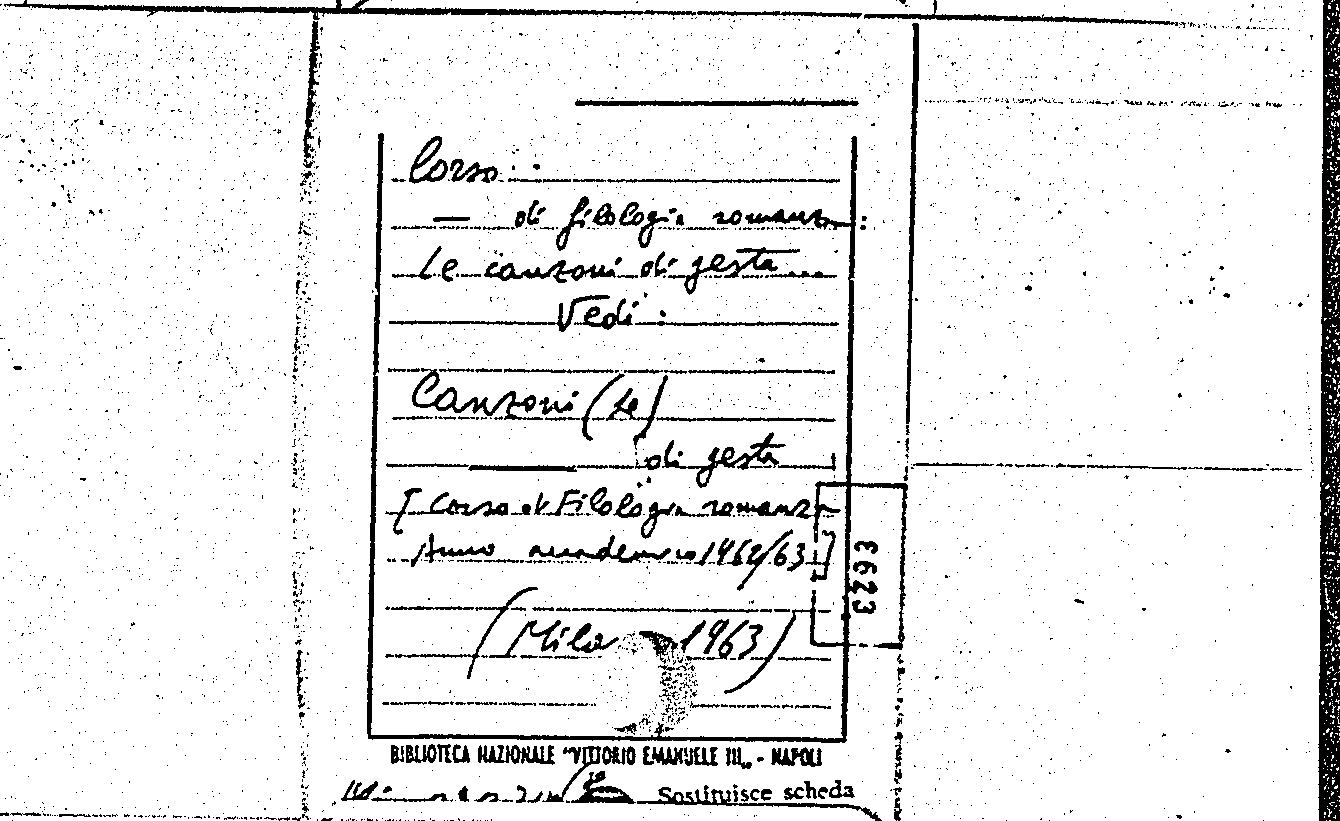 Corso:
— di filologia romanza:
Le canzoni di gesta...
Vedi:
Canzoni (Le)
di gesta
[Corso di Filologia romanza
Anno accademico 1962/63]
(Mila 1963)
3623
BIBLIOTECA NAZIONALE "VITTORIO EMANUELE III„ - NAPOLI
Sostituisce scheda